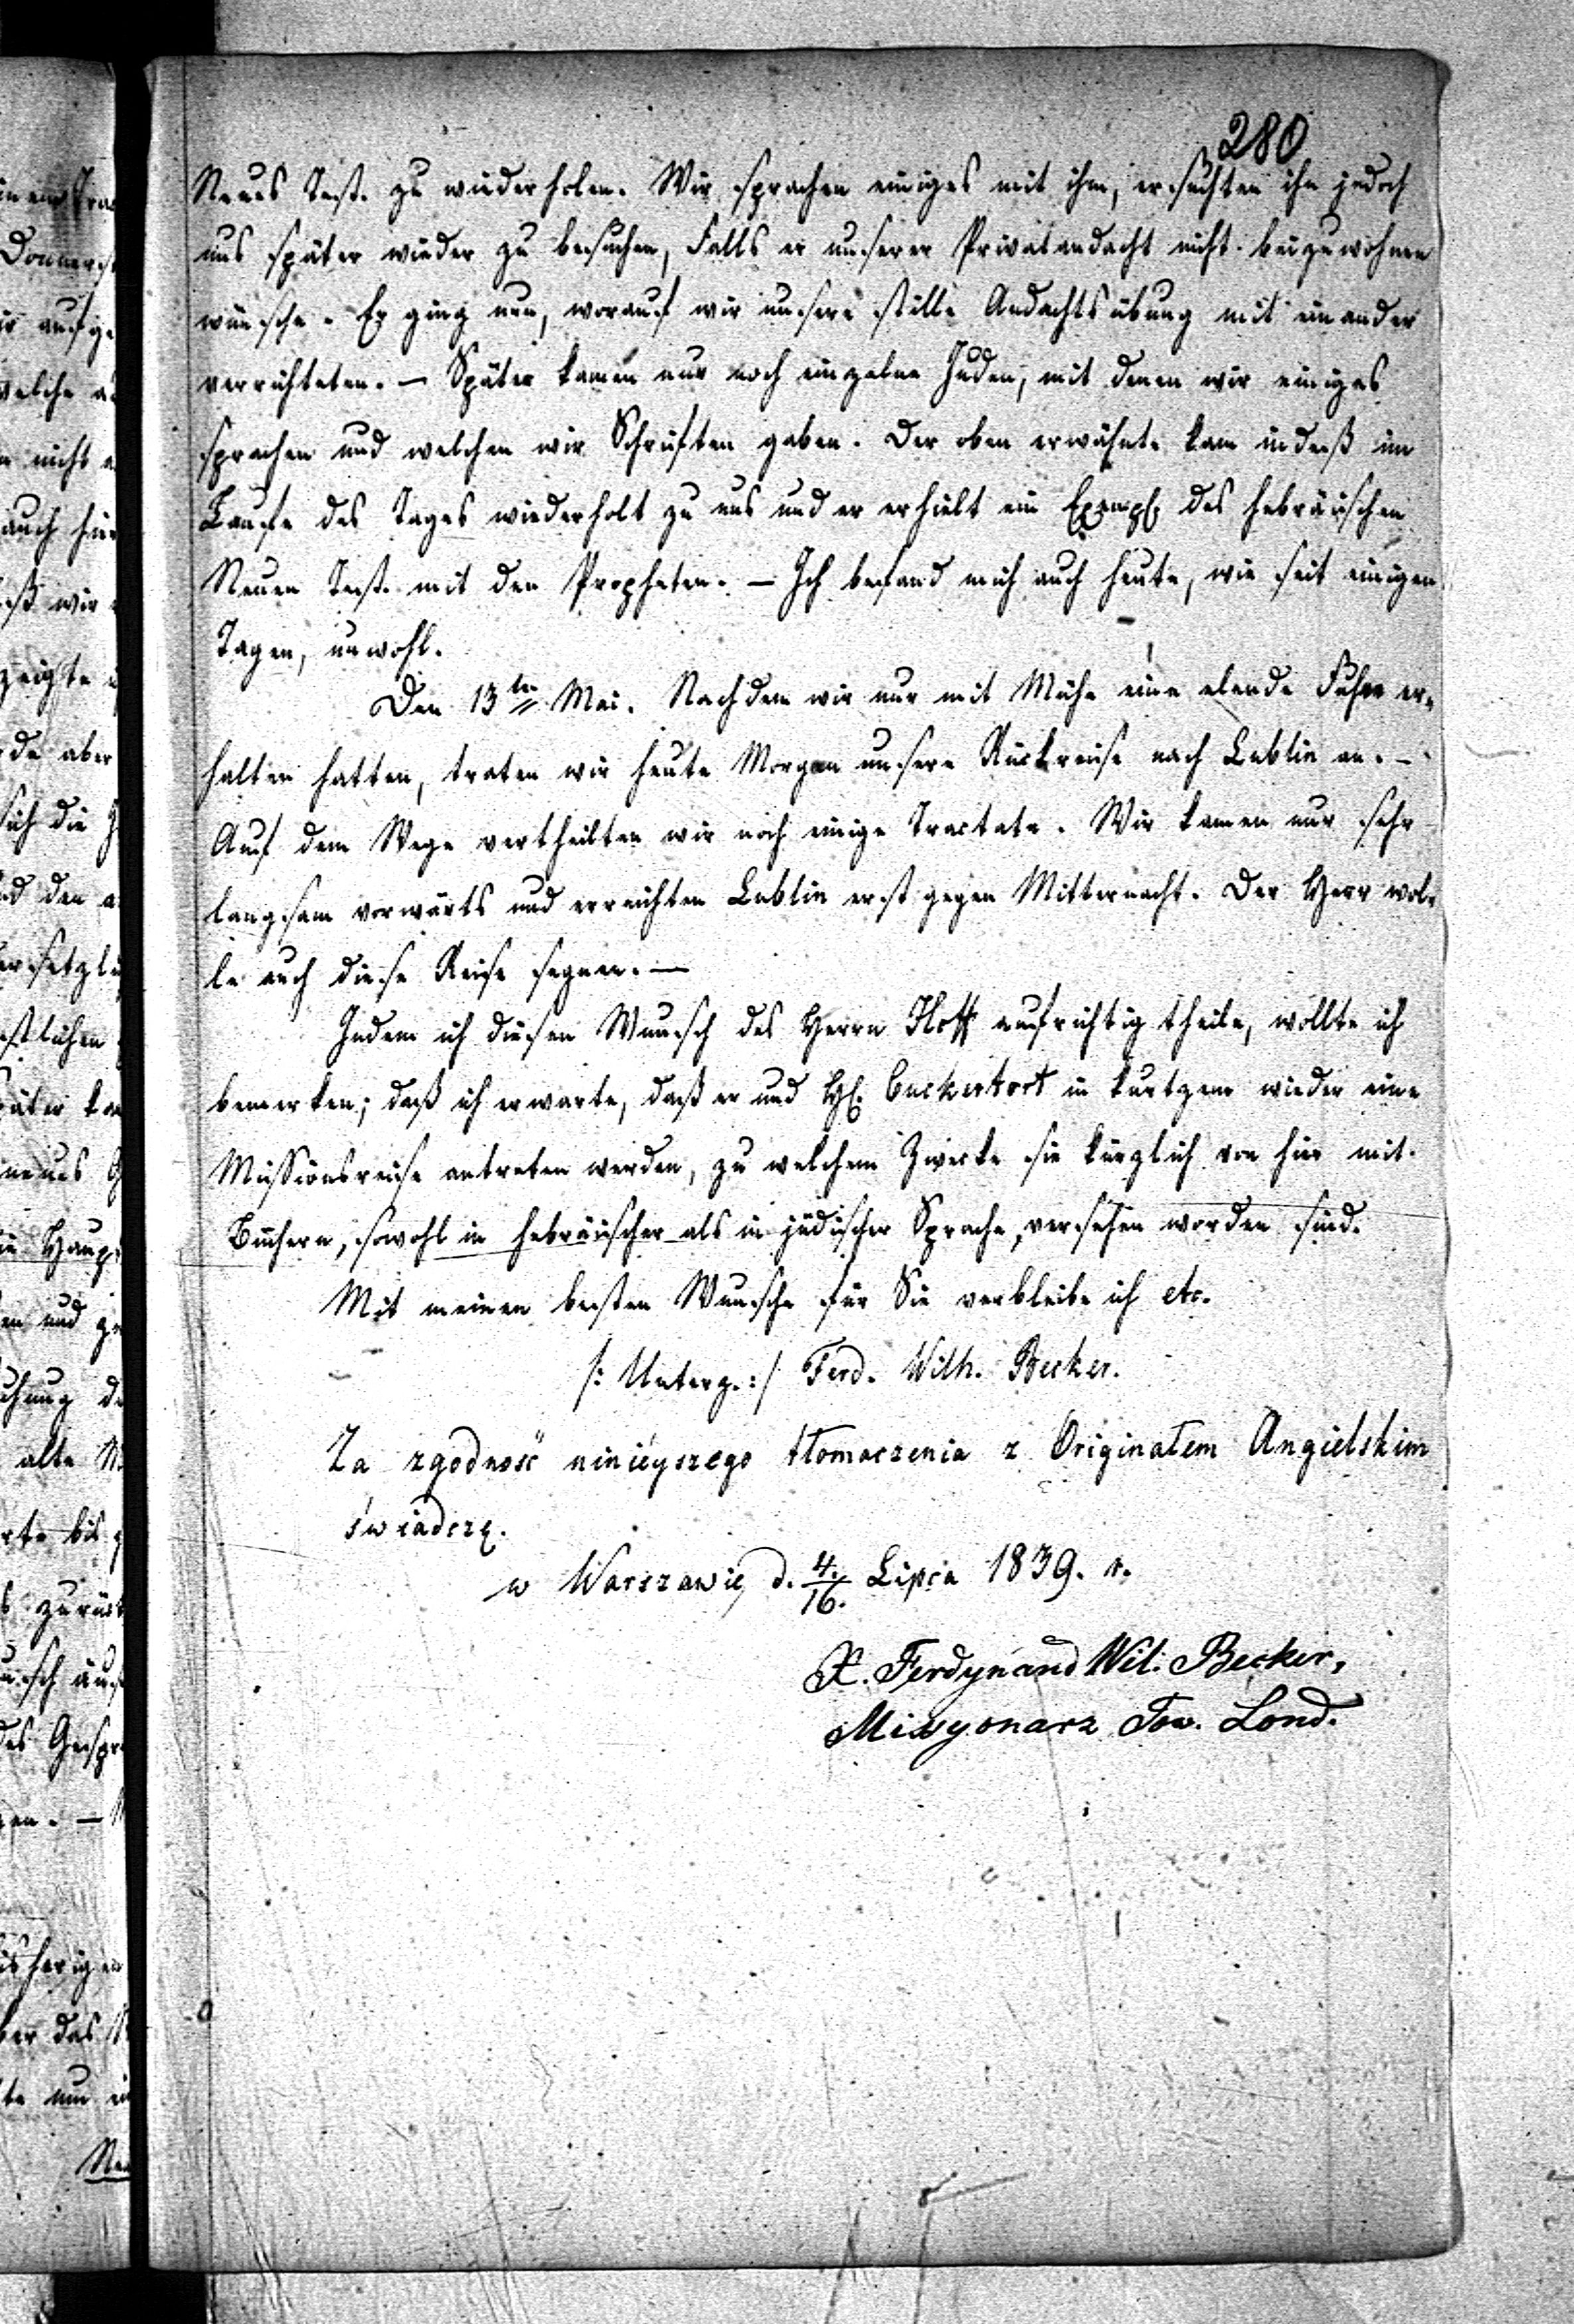 280
Neues Test. zu wiederholen. Wir sprachen einiges mit ihm, ersuchten ihn jedoch
uns später wieder zu besuchen, Falls er unserer Privatandacht nicht beizuwohnen
wünsche. Er ging nun, worauf wir unsere stille Andachtsübung mit einander
verrichteten. — Später kamen nur noch einzelne Juden, mit denen wir einiges
sprachen und welchen wir Schriften gaben. Der oben erwähnte kam indeß im
Laufe des Tages wiederholt zu uns und er erhielt ein Exempl. des hebräischen
Neuen Test. mit den Propheten. — Ich befand mich auch heute, wie seit einigen
Tagen, unwohl.
Den 13ten Mai. Nachdem wir nur mit Mühe eine elende Fuhre er-
halten hatten, traten wir heute Morgen unsere Rückreise nach Lublin an. —
Auf dem Wege vertheilten wir noch einige Tractate. Wir kamen nur sehr
langsam vorwärts und erreichten Lublin erst gegen Mitternacht. Der Herr wol-
le auch diese Reise segnen. —
Indem ich diesen Wunsch des Herrn Hoff aufrichtig theile, wollte ich
bemerken; daß ich erwarte, daß er und H. in kurtzem wieder eine
Missionsreise antreten werden, zu welchem Zwecke sie kürzlich von hier mit
Büchern, sowohl in hebräischer als in jüdischer Sprache, versehen worden sind.
Mit meinen besten Wunsche für Sie verbleibe ich etc.
/: Unterz. :/ Ferd. Wilh. Becker.
Za zgodność ninieyszego tłomaczenia z Originałem Angielskim
świadczę.
w Warszawie d. 4./16. Lipca 1839. r.
X. Ferdynand Wil. Becker,
Missyonarz Tow. Lond.